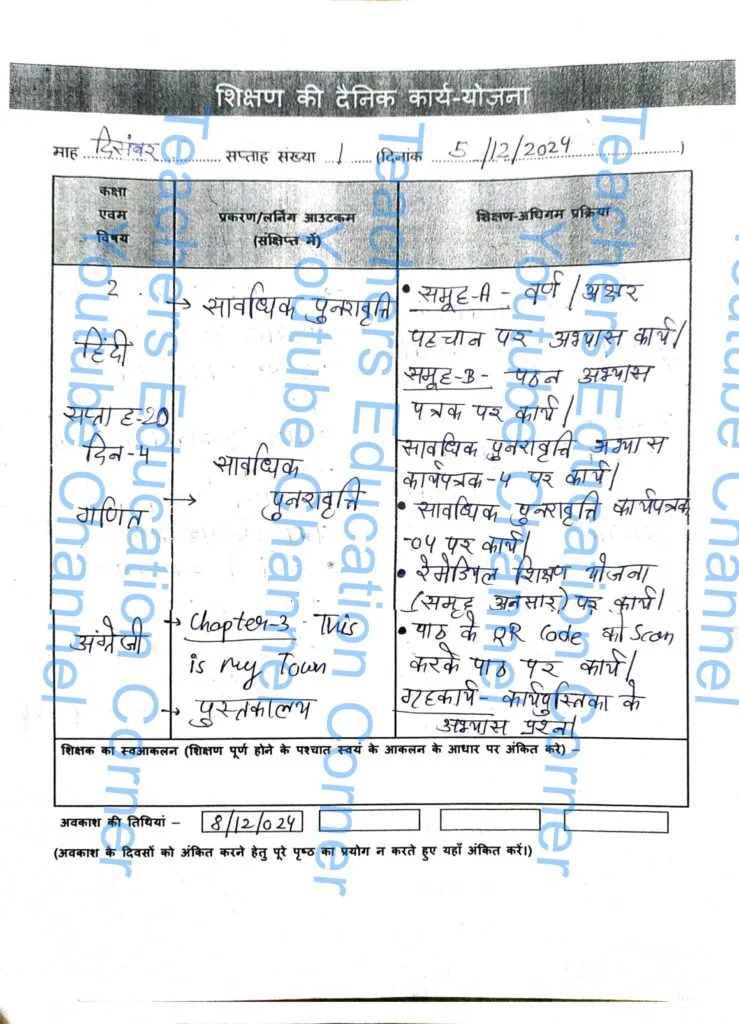 शिक्षण की दैनिक कार्य-योजना
माह दिसंबर सप्ताह संख्या 1 (दिनांक 5/12/2024)
कक्षा
एवम
विषय
प्रकरण/लर्निंग आउटकम
(संक्षिप्त में)
शिक्षण-अधिगम प्रक्रिया
2
हिंदी
सप्ताह-20
दिन-4
→ सावधिक पुनरावृत्ति
• समूह-A - वर्ण/अक्षर
पहचान पर अभ्यास कार्य।
समूह-B- पठन अभ्यास
पत्रक पर कार्य।
सावधिक पुनरावृत्ति अभ्यास
कार्यपत्रक-4 पर कार्य।
गणित
→ सावधिक
पुनरावृत्ति
• सावधिक पुनरावृत्ति कार्यपत्रक
-04 पर कार्य।
• रेमेडियल शिक्षण योजना
(समूह अनुसार) पर कार्य।
अंग्रेजी
→ Chapter-3 This
is my Town
→ पुस्तकालय
• पाठ के QR Code को Scan
करके पाठ पर कार्य।
गृहकार्य - कार्यपुस्तिका के
अभ्यास प्रश्न।
शिक्षक का स्वआकलन (शिक्षण पूर्ण होने के पश्चात स्वयं के आकलन के आधार पर अंकित करे) –
अवकाश की तिथियां – 8/12/024
(अवकाश के दिवसों को अंकित करने हेतु पूरे पृष्ठ का प्रयोग न करते हुए यहाँ अंकित करें।)
Teachers Education Corner
Youtube Channel
Teachers Education Corner
Youtube Channel
Teachers Education Corner
Youtube Channel